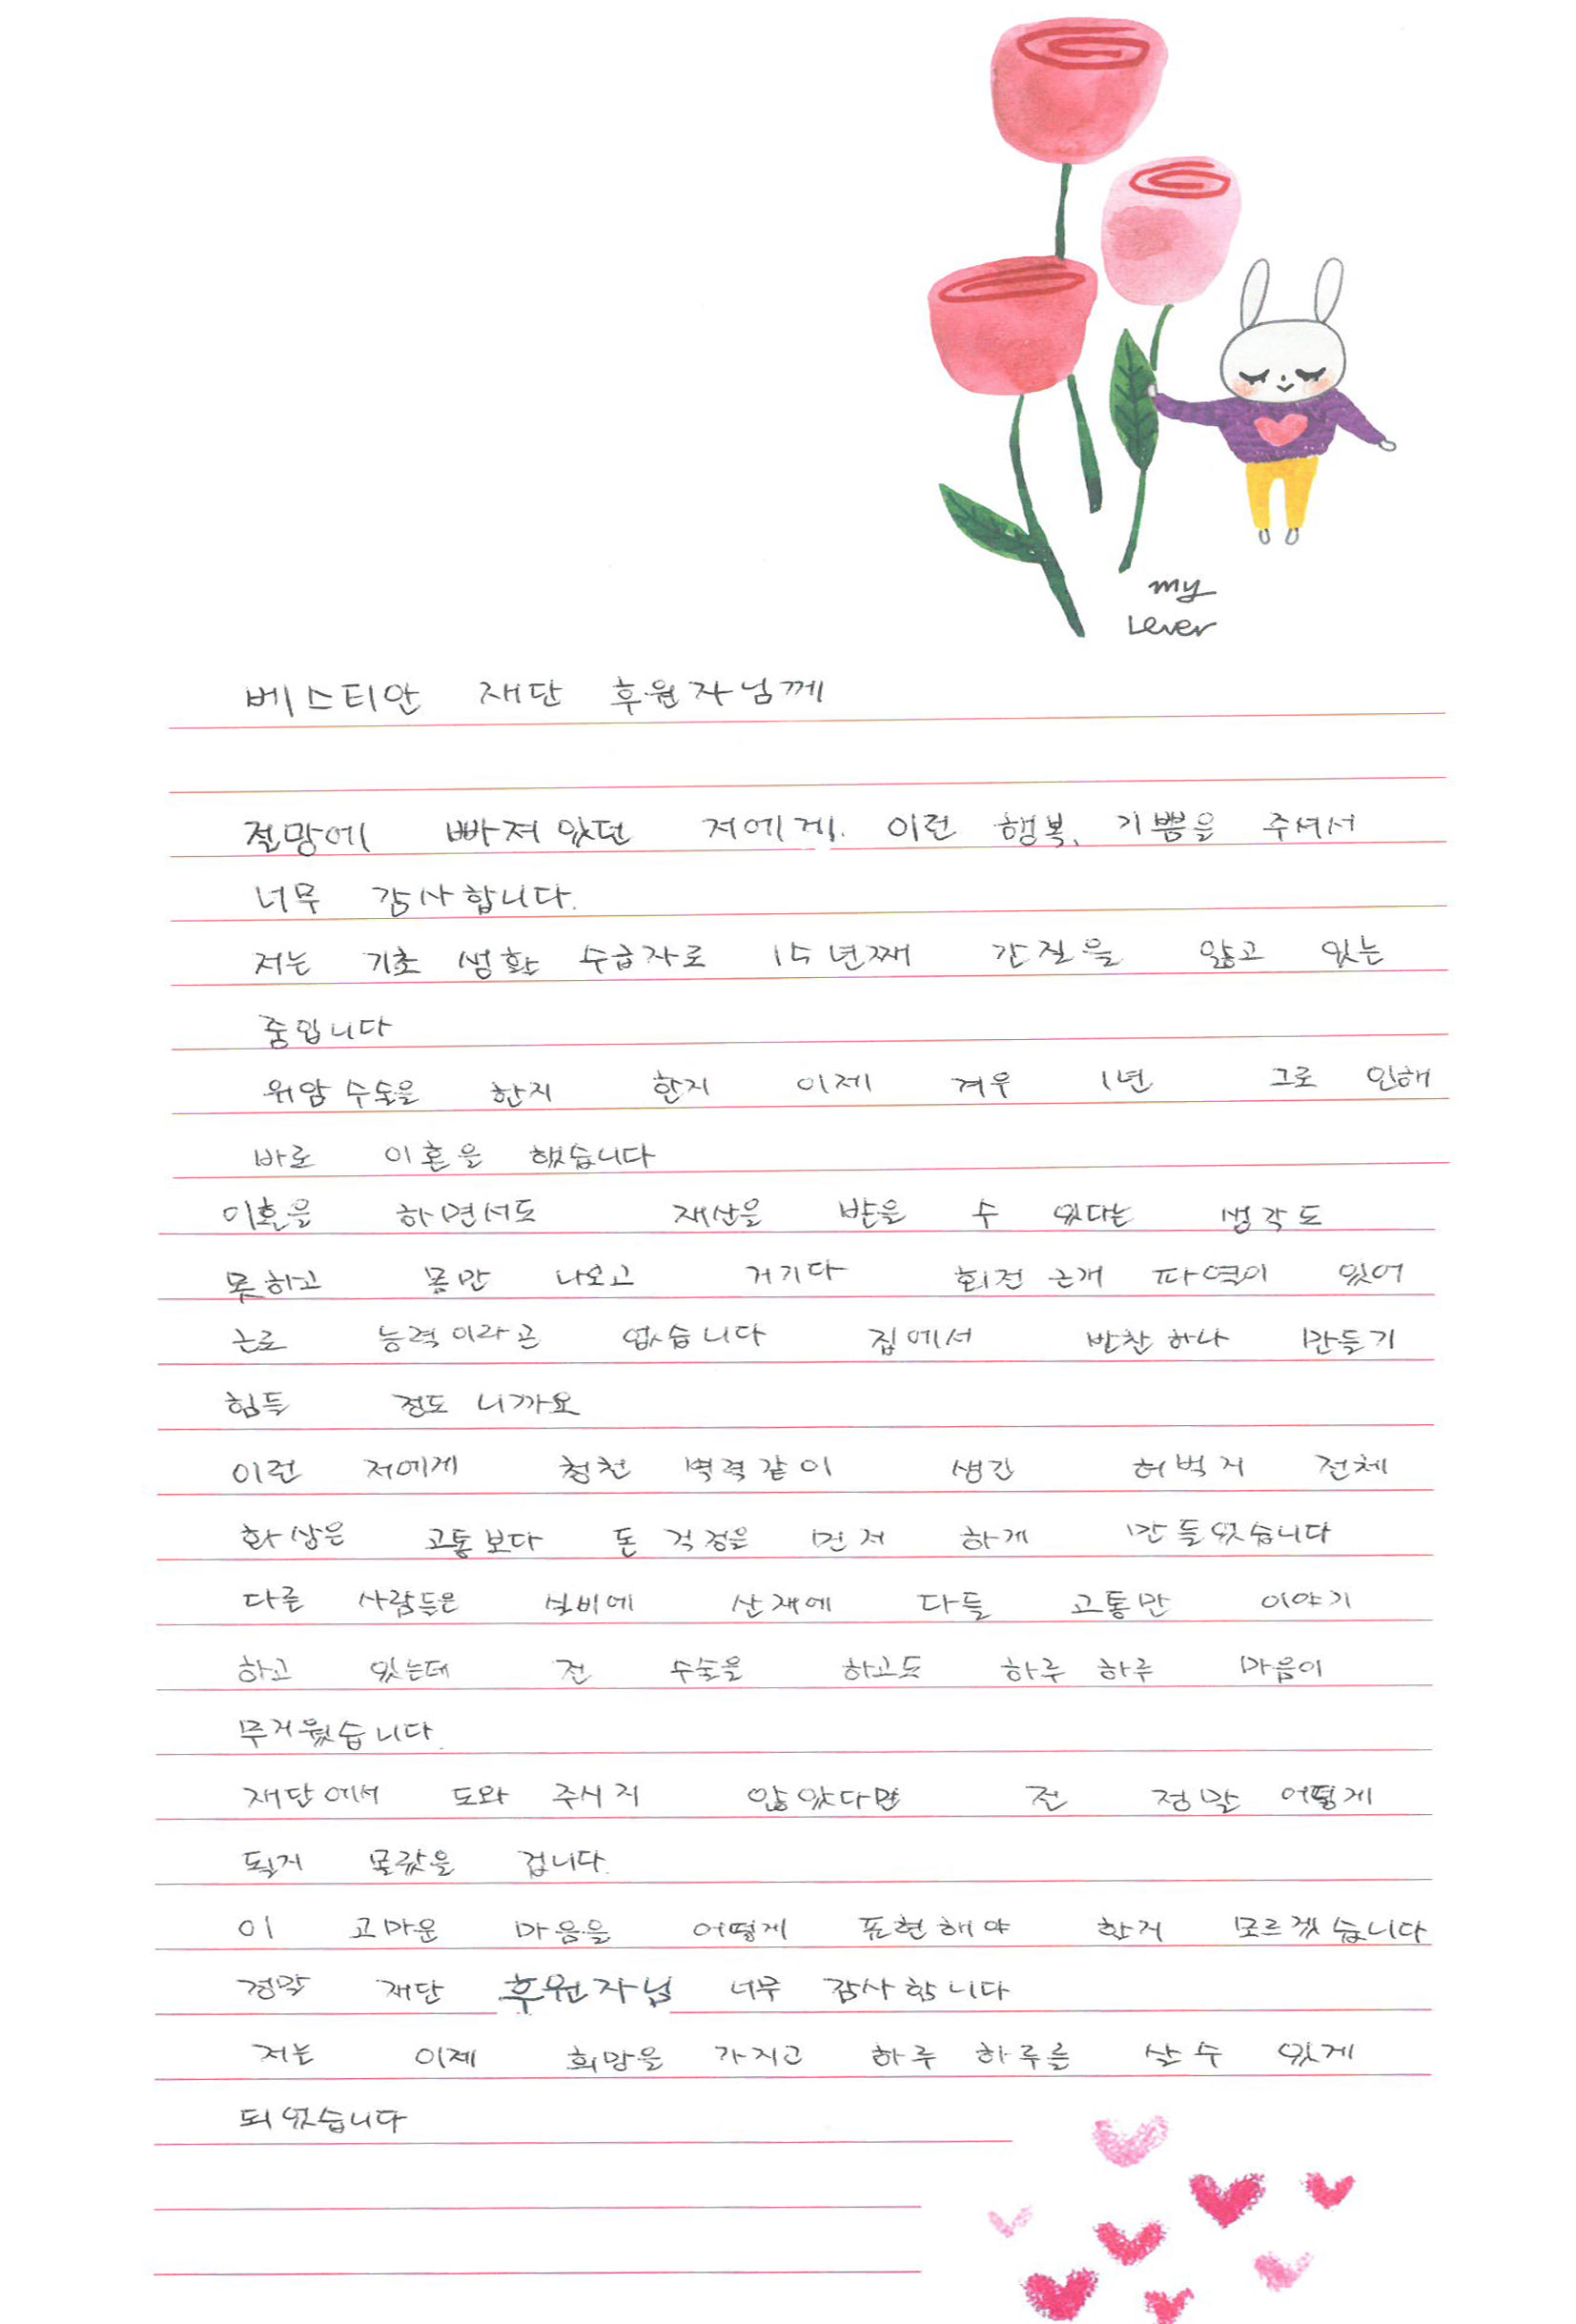 my
Lever
베스티안 재단 후원자님께
절망에 빠져있던 저에게. 이런 행복, 기쁨을 주셔서
너무 감사합니다.
저는 기초 생활 수급자로 15년째 간질을 앓고 있는
중입니다
위암 수술을 한지 한지 이제 겨우 1년 그로 인해
바로 이혼을 했습니다
이혼을 하면서도 재산을 받을 수 있다는 생각도
못하고 몸만 나오고 거기다 회전 근개 파열이 있어
근로 능력이라곤 없습니다 집에서 반찬하나 만들기
힘들 정도 니까요
이런 저에게 청천 벽력같이 생긴 허벅지 전체
화상은 고통보다 돈 걱정을 먼저 하게 만들었습니다
다른 사람들은 실비에 산재에 다들 고통만 이야기
하고 있는데 전 수술을 하고도 하루 하루 마음이
무거웠습니다.
재단에서 도와 주시지 않았다면 전 정말 어떻게
될지 몰랐을 겁니다.
이 고마운 마음을 어떻게 표현해야 할지 모르겠습니다
정말 재단 후원자님 너무 감사합니다
저는 이제 희망을 가지고 하루 하루를 살수 있게
되었습니다